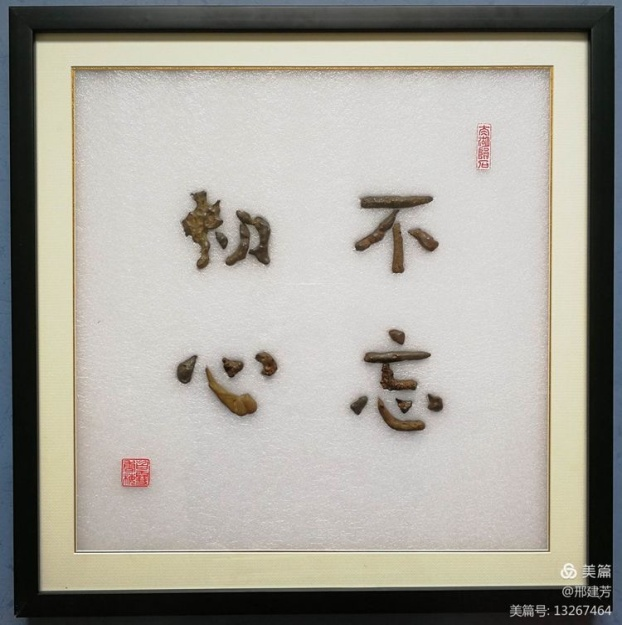 不忘
初心
美篇
@邢建芳
美篇号: 13267464